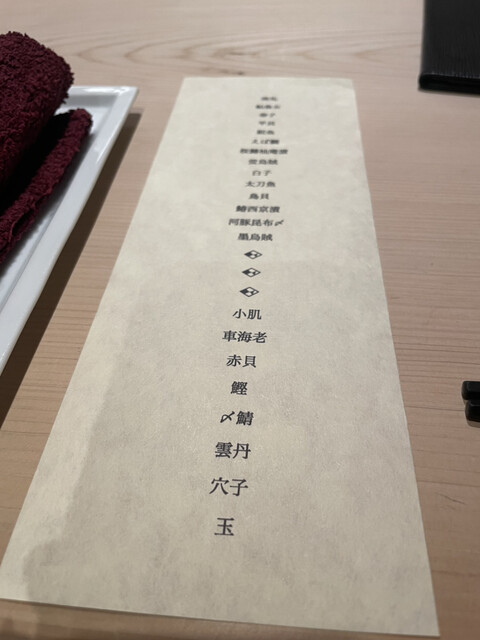 春子
平貝
鮟肝
えぼ鯛
蛍烏賊
白子
太刀魚
鳥貝
鰆西京漬
河豚昆布〆
墨烏賊
小肌
車海老
赤貝
鰹
〆鯖
雲丹
穴子
玉